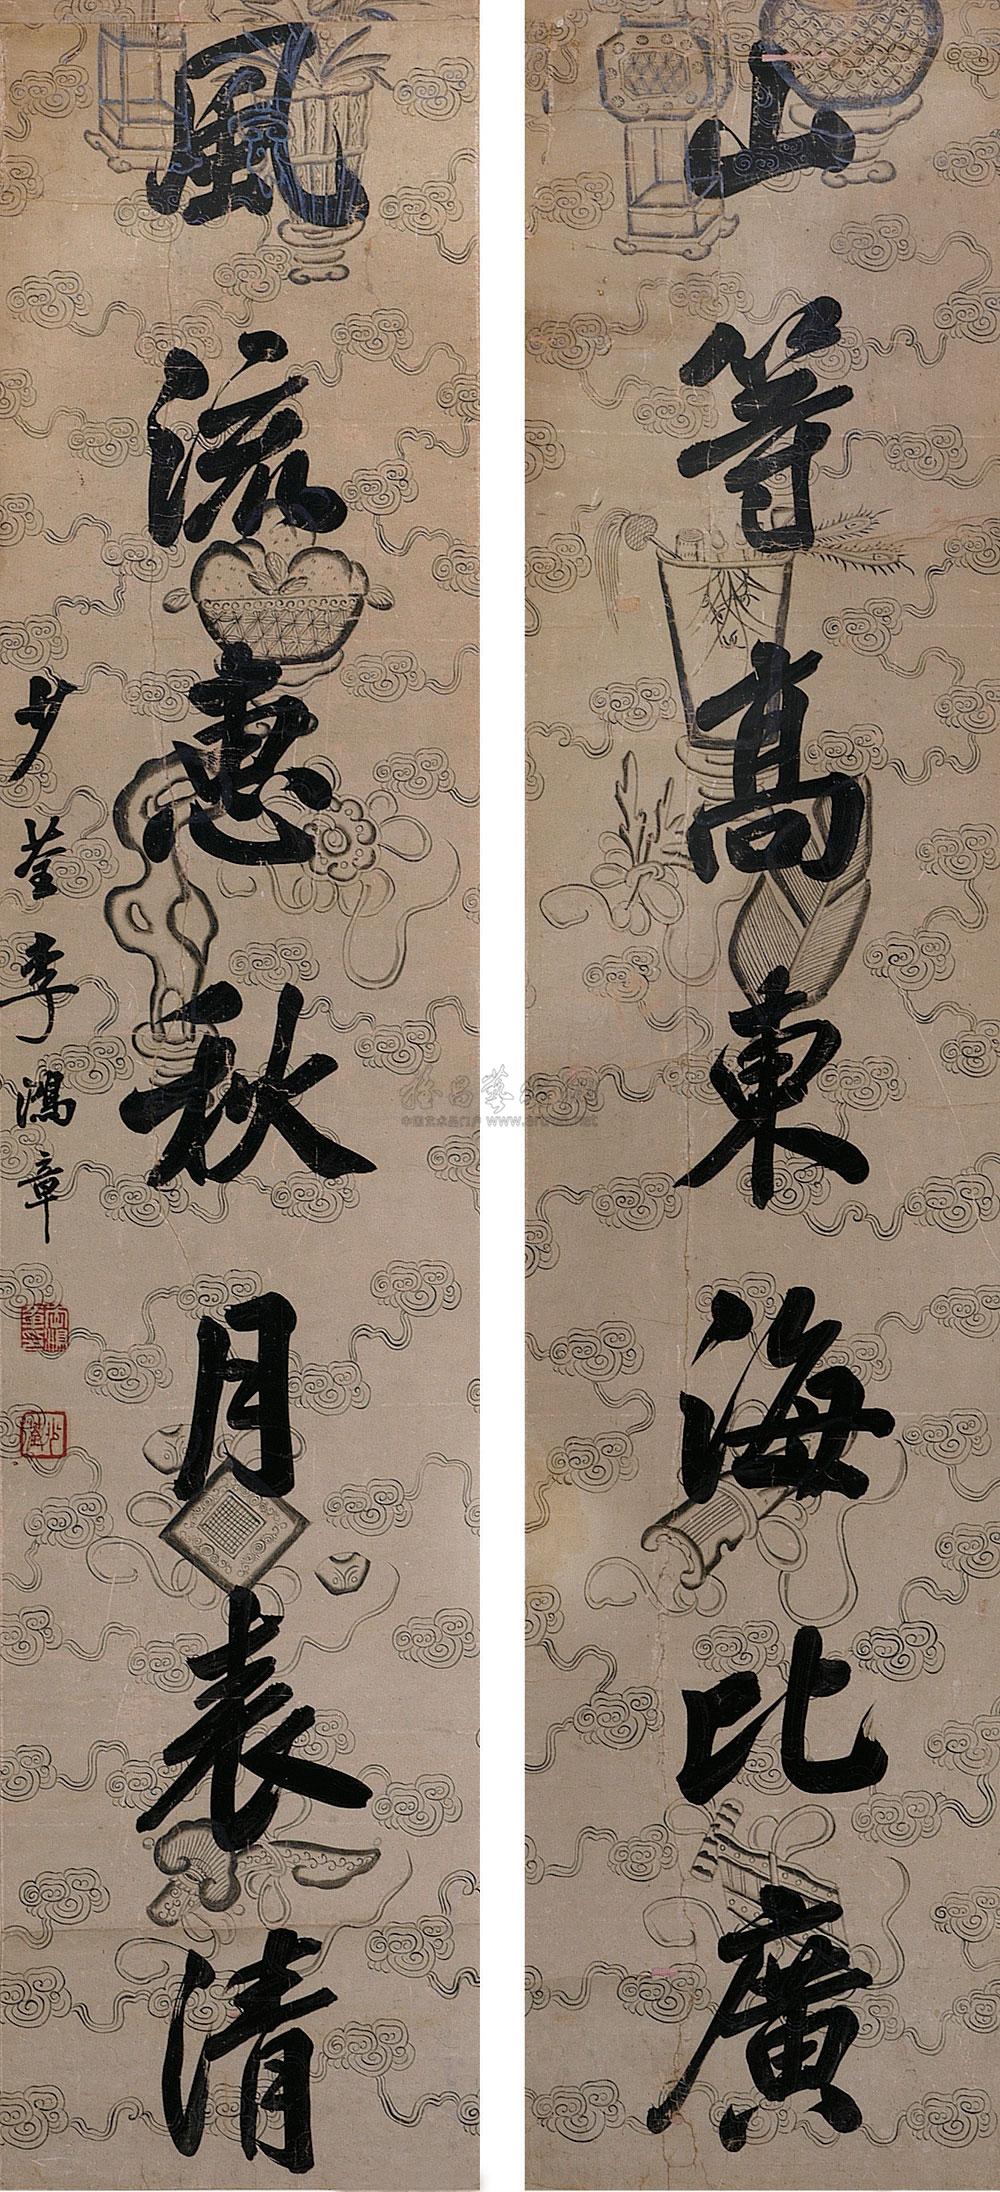 山等高東海比廣
風流惠秋月表清
少荃李鴻章
少荃